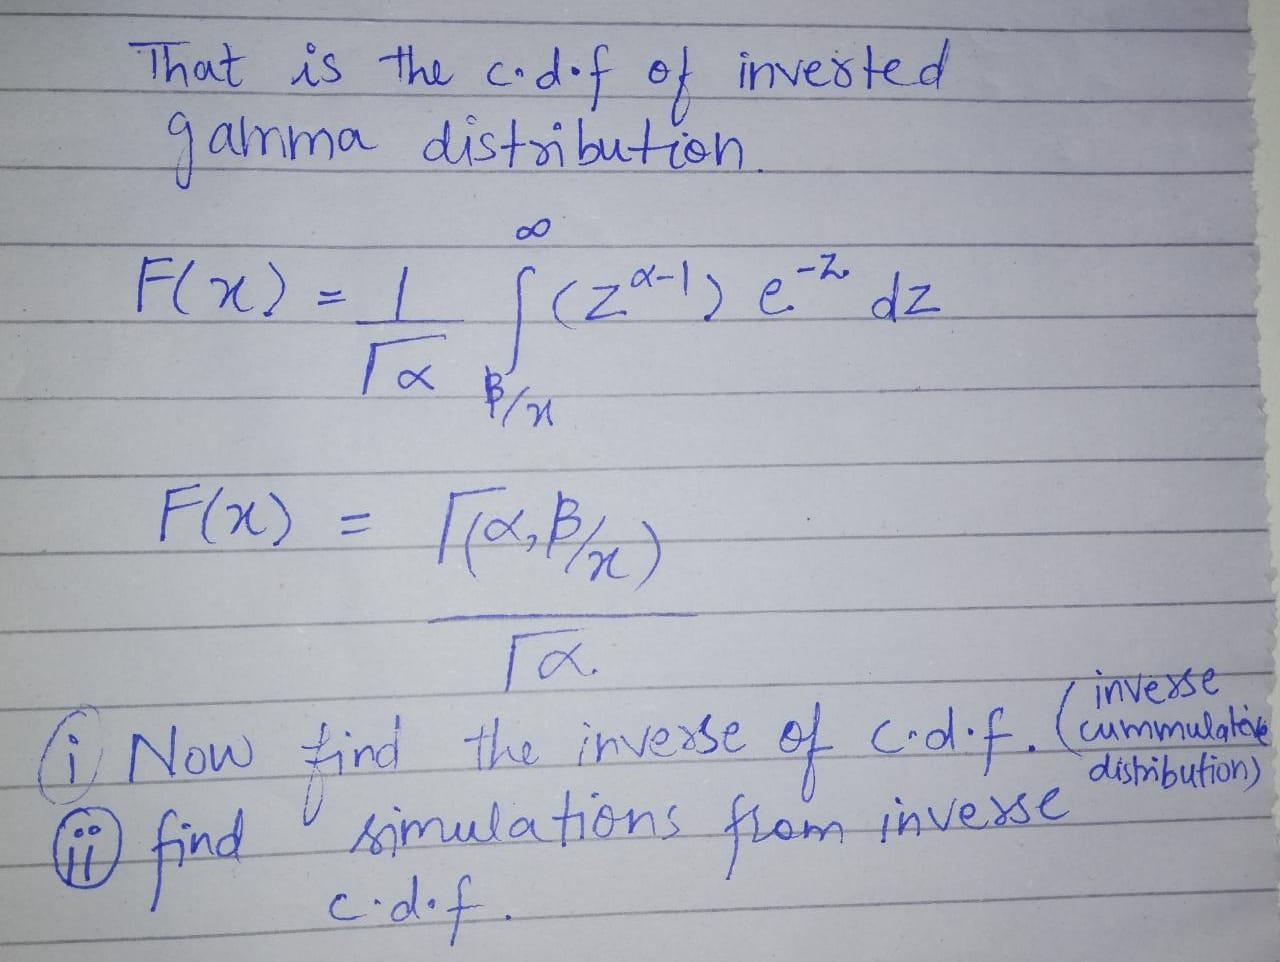 That is the c.d.f of inverted
gamma distribution.
F(x) = 1/Γα ∫_{β/x}^{∞} (z^{α-1}) e^{-z} dz
F(x) = Γ(α, β/x) / Γα.
(i) Now find the inverse of c.d.f. (inverse cummulative distribution)
(ii) find simulations from inverse
c.d.f.